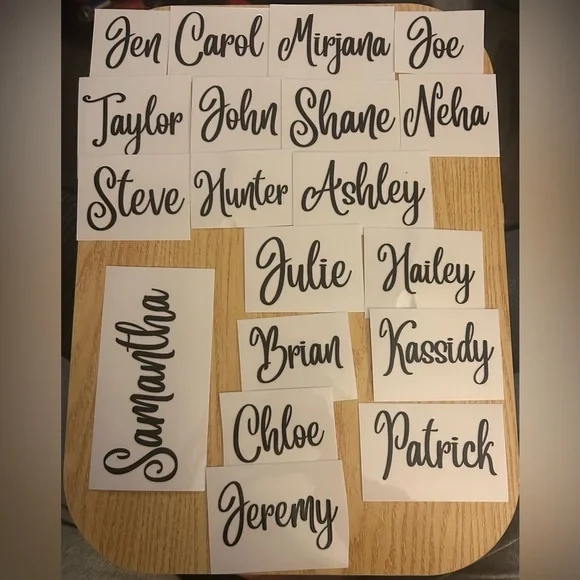 Jen Carol Mirjana Joe
Taylor John Shane Neha
Steve Hunter Ashley
Julie Hailey
Samantha
Brian Kassidy
Chloe Patrick
Jeremy